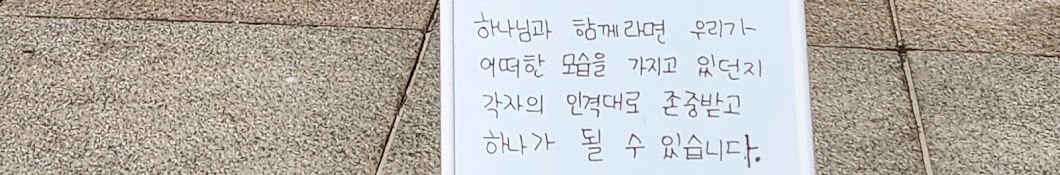 하나님과 함께라면 우리가
어떠한 모습을 가지고 있던지
각자의 인격대로 존중받고
하나가 될 수 있습니다.